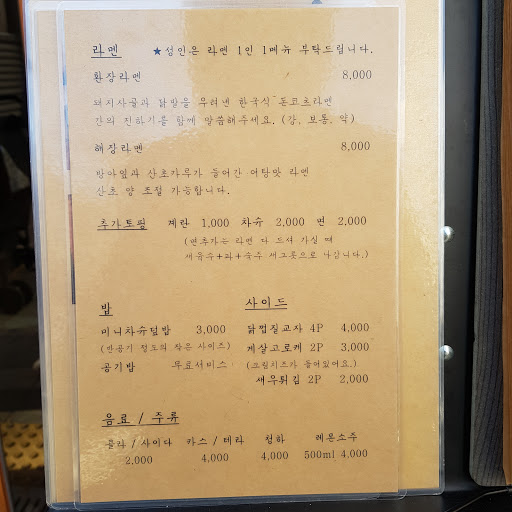 라멘 ★성인은 라멘 1인 1메뉴 부탁드립니다.
환장라멘 8,000
돼지사골과 닭발을 우려낸 한국식 돈코츠라멘
간의 진하기를 함께 말씀해주세요. (강, 보통, 약)
해장라멘 8,000
방아잎과 산초가루가 들어간 어탕맛 라멘
산초 양 조절 가능합니다.
추가토핑 계란 1,000 차슈 2,000 면 2,000
(면추가는 라멘 다 드셔 가실 때
제육수+파+숙주 세그릇으로 나갑니다.)
밥 사이드
미니차슈덮밥 3,000 닭껍질교자 4P 4,000
(반공기 정도의 작은 사이즈) 게살고로케 2P 3,000
공기밥 무료서비스 (크림치즈가 들어있어요.)
새우튀김 2P 2,000
음료 / 주류
콜라 / 사이다 카스 / 테라 청하 레몬소주
2,000 4,000 4,000 500ml 4,000